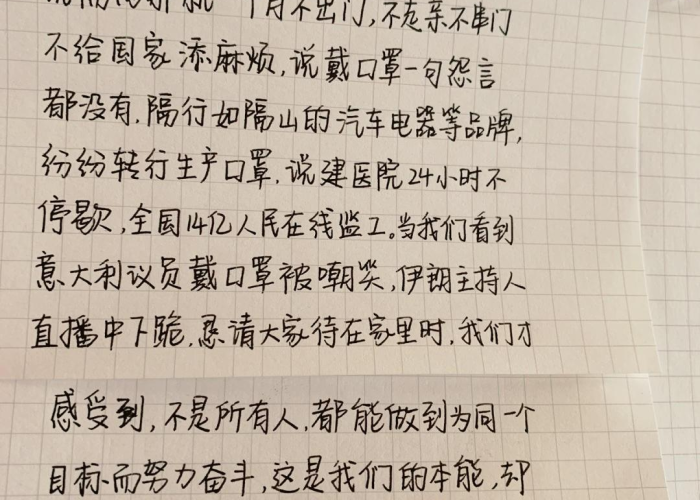 一个月不出门,不走亲不串门
不给国家添麻烦,说戴口罩一句怨言
都没有,隔行如隔山的汽车电器等品牌,
纷纷转行生产口罩,说建医院24小时不
停歇,全国14亿人民在线监工。当我们看到
意大利议员戴口罩被嘲笑,伊朗主持人
直播中下跪,恳请大家待在家里时,我们才
感受到,不是所有人,都能做到为同一个
目标而努力奋斗,这是我们的本能,却